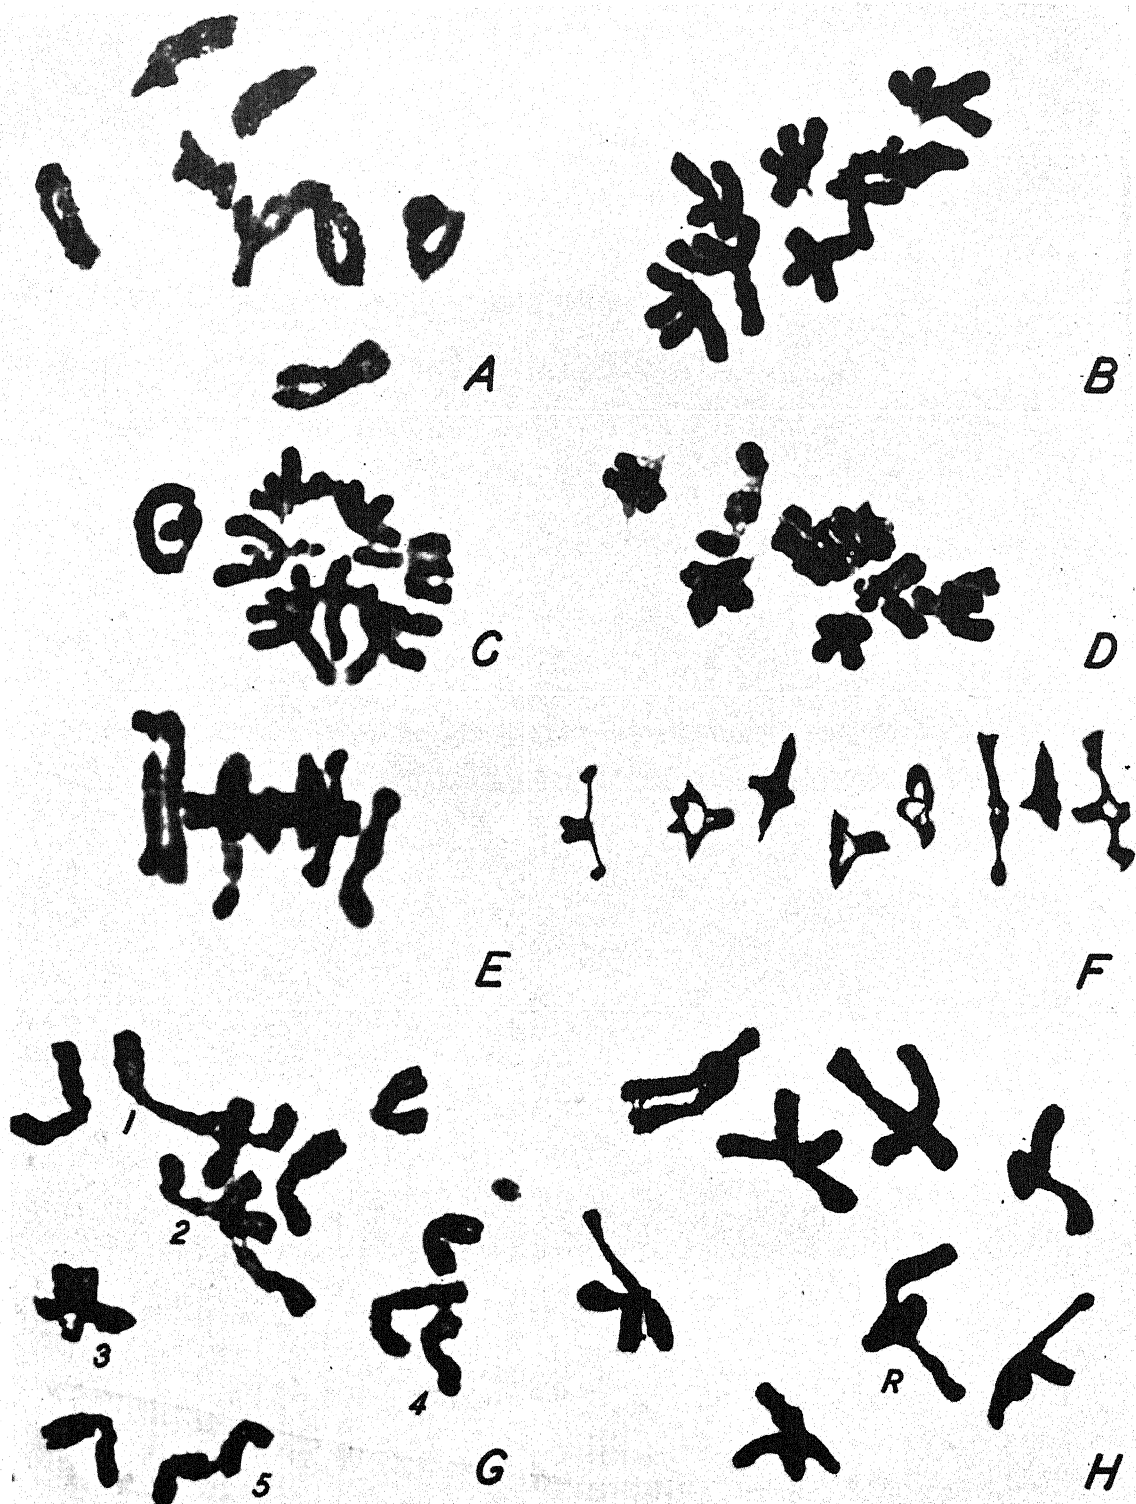 A
B
C
D
E
F
1
2
3
4
5
G
R
H